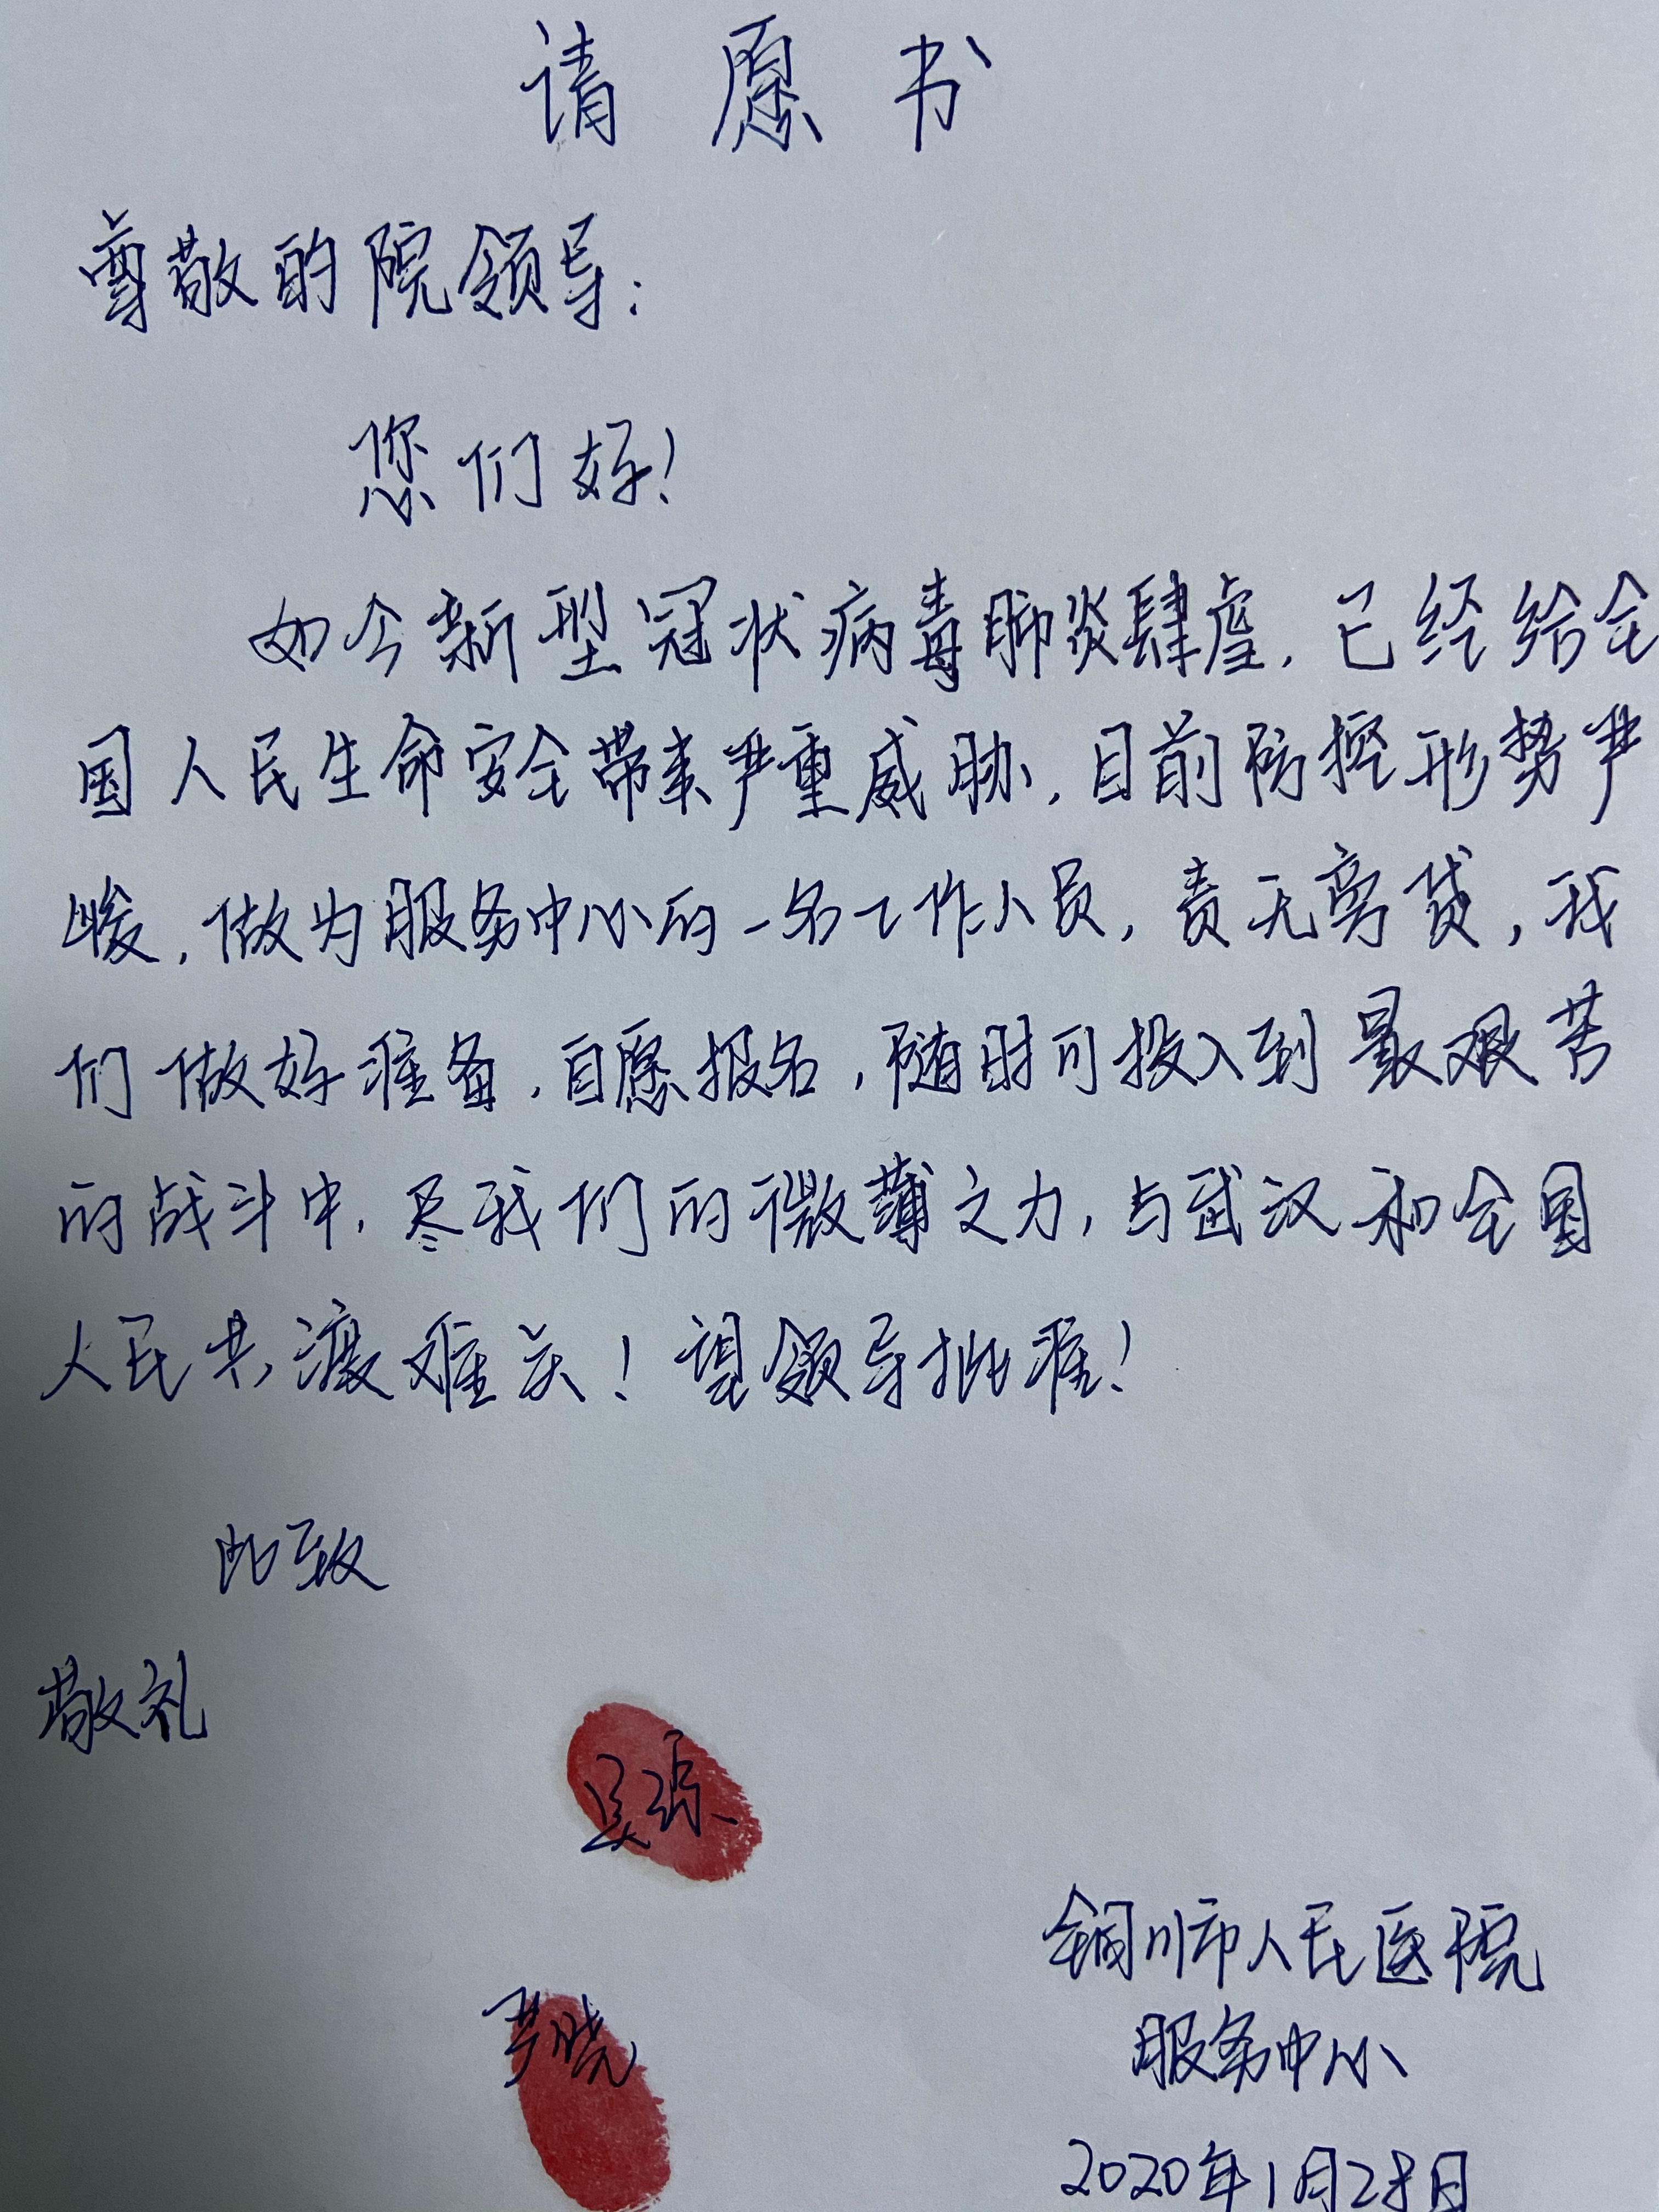 请愿书
尊敬的院领导：
您们好！
如今新型冠状病毒肺炎肆虐，已经给全
国人民生命安全带来严重威胁，目前防控形势严
峻，做为服务中心的一名工作人员，责无旁贷，我
们做好准备，自愿报名，随时可投入到最艰苦
的战斗中，尽我们的微薄之力，与武汉和全国
人民共渡难关！望领导批准！
此致
敬礼
吴琼
铜川市人民医院
严晓
服务中心
2020年1月28日